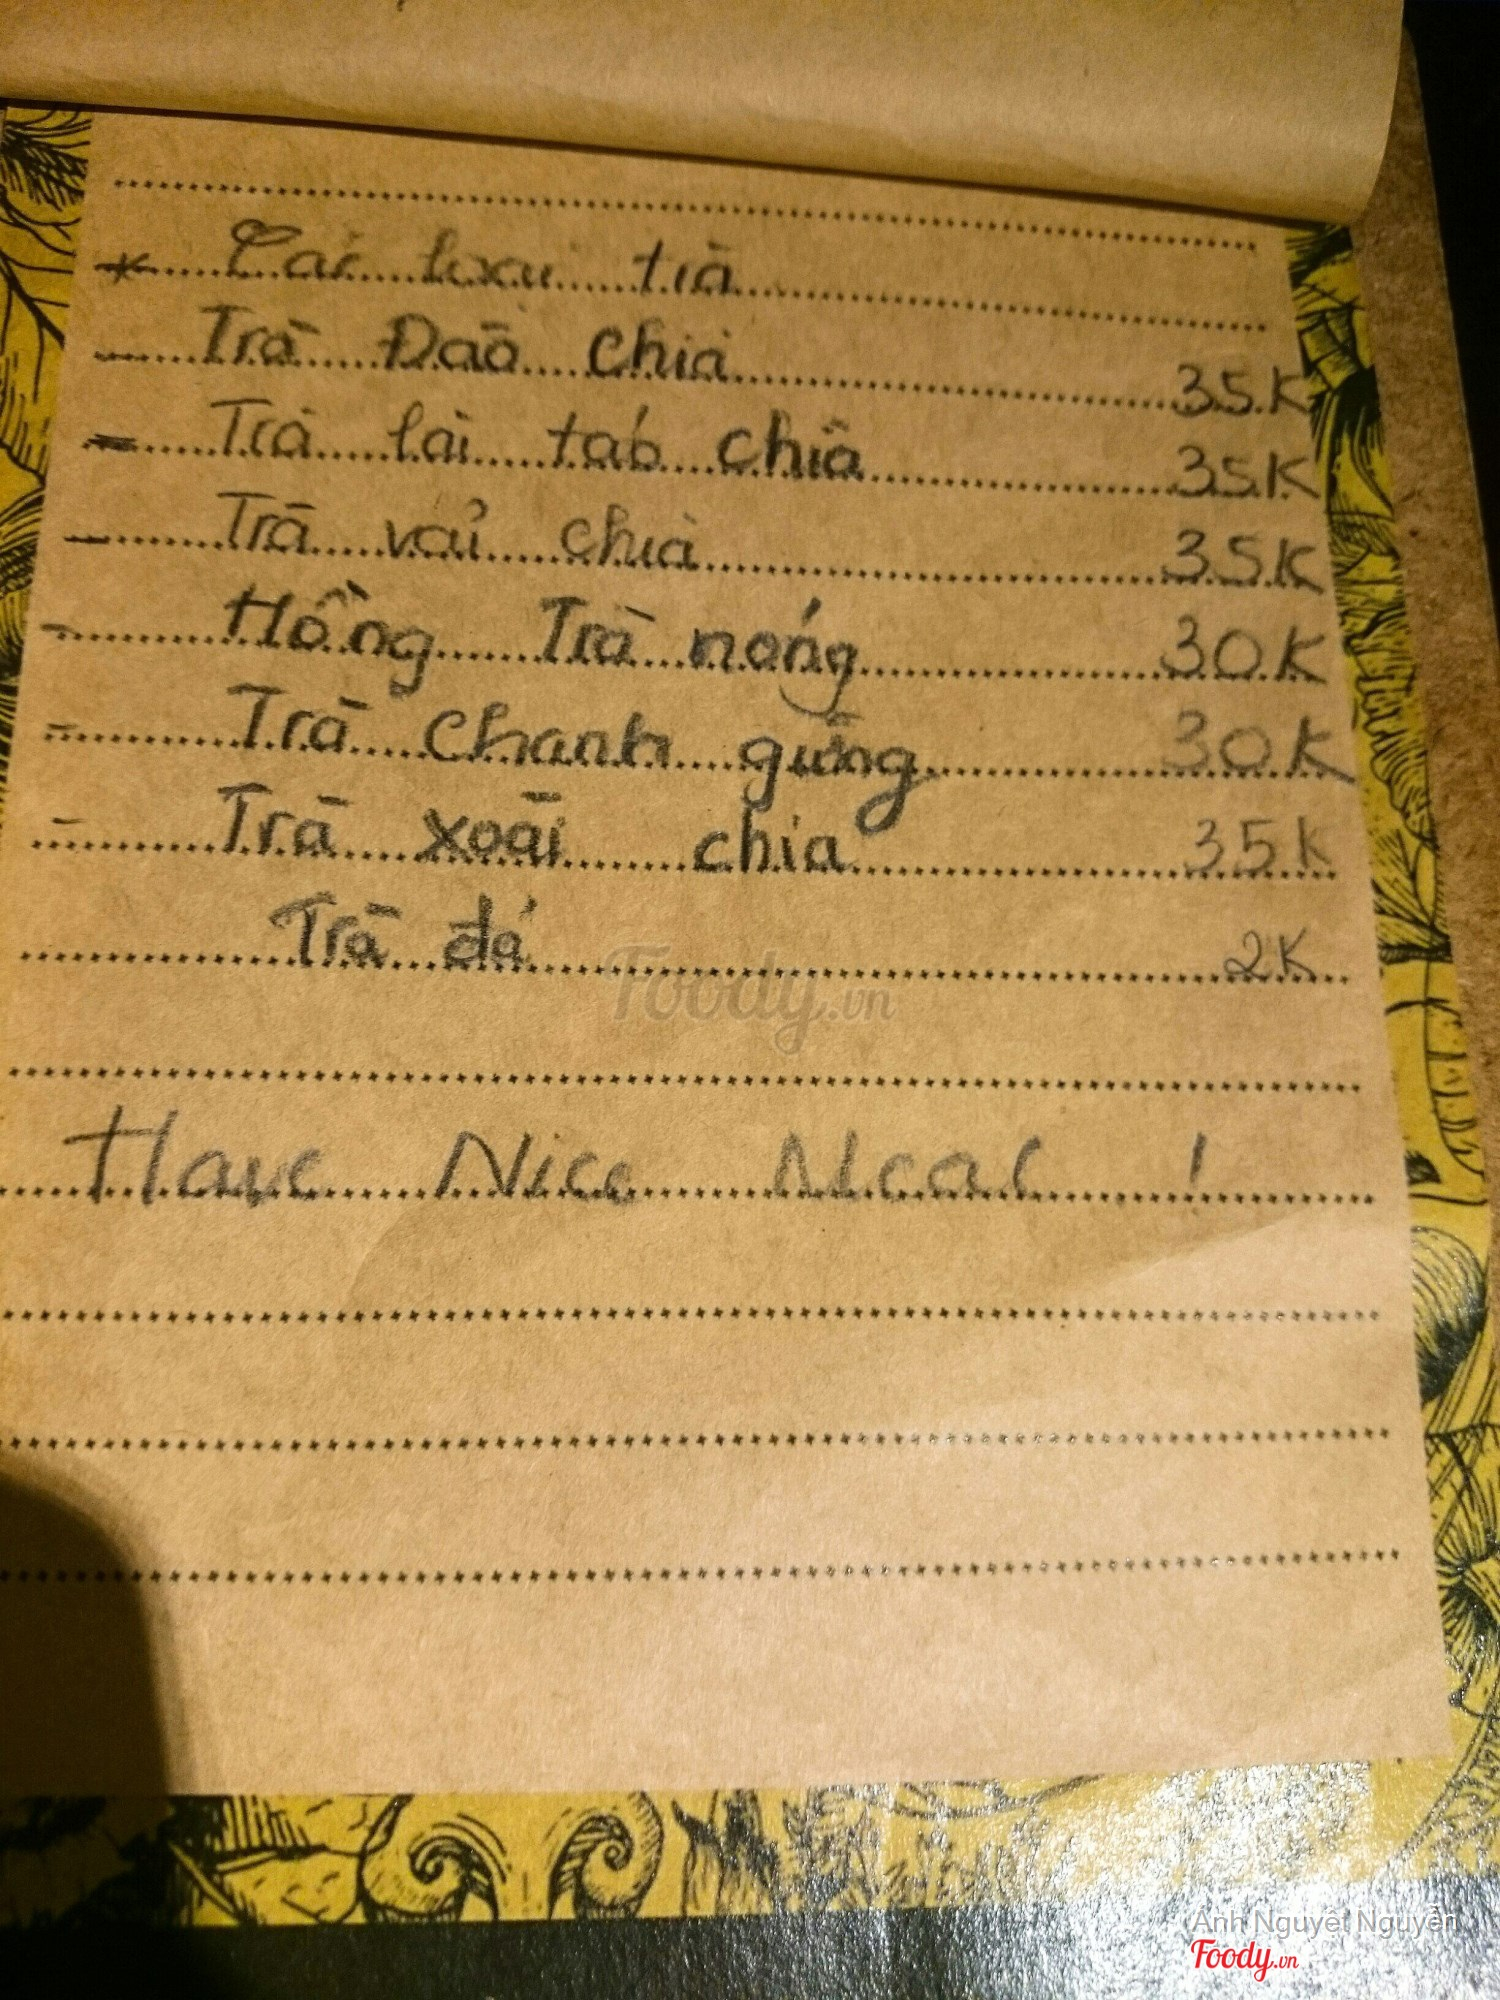 * Các loại trà
- Trà Đào chia 35K
- Trà lài táo chia 35K
- Trà vải chia 35K
- Hồng Trà nóng 30K
- Trà chanh gừng 30K
- Trà xoài chia 35K
Trà đá 2K
Foody.vn
Have Nice Meal !
Ánh Nguyệt Nguyễn
Foody.vn